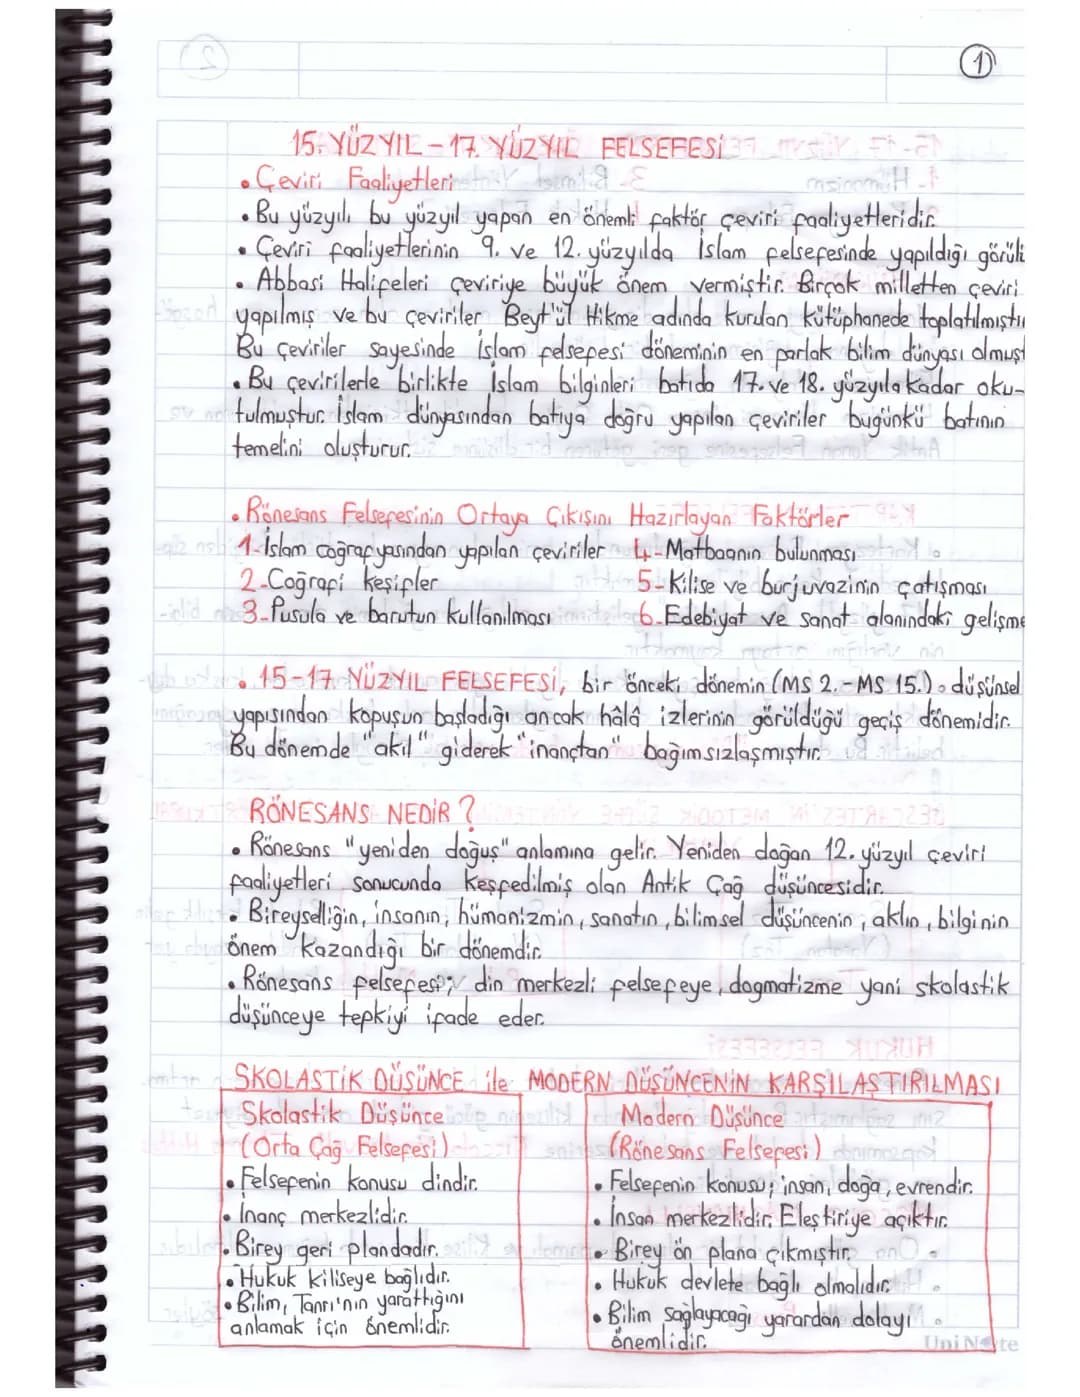 1
15. YÜZYIL - 17. YÜZYIL FELSEFESİ
• Çeviri Faaliyetleri
• Bu yüzyılı bu yüzyıl yapan en önemli faktör çeviri faaliyetleridir.
• Çeviri faaliyetlerinin 9. ve 12. yüzyılda İslam felsefesinde yapıldığı görüli
• Abbasi Halifeleri çeviriye büyük önem vermiştir. Birçok milletten çeviri
yapılmış ve bu çeviriler Beyt'ül Hikme adında kurulan kütüphanede toplatılmıştı
Bu çeviriler sayesinde İslam felsefesi döneminin en parlak bilim dünyası olmuşt
• Bu çevirilerle birlikte İslam bilginleri batıda 17. ve 18. yüzyıla kadar oku-
tulmuştur. İslam dünyasından batıya doğru yapılan çeviriler bugünkü batının
temelini oluşturur.
• Rönesans Felsefesinin Ortaya Çıkışını Hazırlayan Faktörler
1-İslam coğrafyasından yapılan çeviriler 4-Matbaanın bulunması
2-Coğrafi keşifler 5-Kilise ve burjuvazinin çatışması
3-Pusula ve barutun kullanılması 6-Edebiyat ve sanat alanındaki gelişme
• 15-17. YÜZYIL FELSEFESİ, bir önceki dönemin (MS 2.-MS 15.) düşünsel
yapısından kopuşun başladığı ancak hâlâ izlerinin görüldüğü geçiş dönemidir.
Bu dönemde "akıl" giderek "inançtan" bağımsızlaşmıştır.
RÖNESANS NEDİR?
• Rönesans "yeniden doğuş" anlamına gelir. Yeniden doğan 12. yüzyıl çeviri
faaliyetleri sonucunda keşfedilmiş olan Antik Çağ düşüncesidir.
• Bireyselliğin, insanın, hümanizmin, sanatın, bilimsel düşüncenin, aklın, bilginin
önem kazandığı bir dönemdir.
• Rönesans felsefesi; din merkezli felsefeye, dogmatizme yani skolastik
düşünceye tepkiyi ifade eder.
SKOLASTİK DÜŞÜNCE ile MODERN DÜŞÜNCENİN KARŞILAŞTIRILMASI
Skolastik Düşünce
(Orta Çağ Felsefesi)
• Felsefenin konusu dindir.
• İnanç merkezlidir.
• Birey geri plandadır.
• Hukuk kiliseye bağlıdır.
• Bilim, Tanrı'nın yarattığını
anlamak için önemlidir.
Modern Düşünce
(Rönesans Felsefesi)
• Felsefenin konusu; insan, doğa, evrendir.
• İnsan merkezlidir. Eleştiriye açıktır.
• Birey ön plana çıkmıştır.
• Hukuk devlete bağlı olmalıdır.
• Bilim sağlayacağı yarardan dolayı
önemlidir.
UniNote